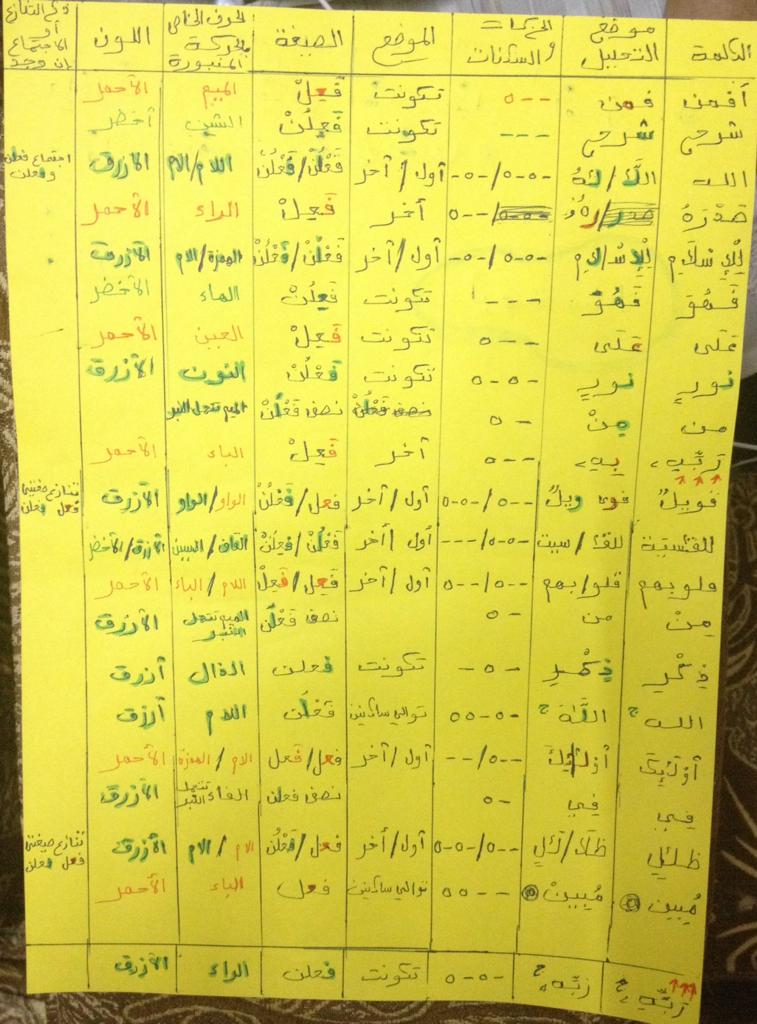 الكلمة موضع التعليل الحركات والسكنات الموضع الصيغة الحرف الخاص بالحركة المنبورة اللون وقع التنازع أو الاجتماع إن وجد
أفمن فمن --o تكونت فَعِلْ الميم الأحمر
شرح شرح --- تكونت فَعِلُنْ الشين أخضر
الله اللَّا/لَهُ -o-o/--o- أول/آخر فَعْلُنْ/فَعْلُنْ اللام/الام الأزرق اجتماع فعلن وفعلن
صَدْرَهُ صدر/رهُ --o آخر فَعِلْ الراء الأحمر
لِلْإِسْلَامِ لِلْإِسْ/لَامِ -o-o/--o- أول/آخر فَعْلُنْ/فَعْلُنْ الهمزة/الام الأزرق
فَهُوَ فَهُوَ --- تكونت فَعِلُنْ الهاء الأخضر
عَلَى عَلَى --o تكونت فَعِلْ العين الأحمر
نورٍ نورٍ -o-o تكونت فَعْلُنْ النون الأزرق
من مِنْ -o نصف فَعْلُنْ الميم تتحمل النبر
رَبِّهِ، بِهِ، --o آخر فَعِلْ الباء الأحمر
فويلٌ فوي ويلٌ --o/-o-o أول/آخر فعل/فَعْلُنْ الواو/الواو الأزرق تنازع صيغتي فعل فعلن
للقسية للقا/سيت -o-o/--- أول/آخر فَعْلُنْ/فَعِلُنْ القاف/السين الأزرق/الأخضر
قلوبهم قلو/بهم --o/--o أول/آخر فَعِلْ/فَعِلْ اللام/الباء الأحمر
مِنْ من -o نصف فَعْلُنْ الميم تتحمل النبر الأزرق
ذِكْرِ ذِكْرِ -o- تكونت فعلن الذال أزرق
الله ج اللَّهَ ج -o-oo توالي ساكنين فَعْلُنْ اللام أزرق
أُوْلَئِكَ أُوْلَئِكَ --o/-- أول/آخر فعل/فعل الام/الهمزة الأحمر
في في -o نصف فعلن الفاء تتحمل النبر الأزرق
ضَلَالٍ ضَلَا/لَالٍ --o/-o-o أول/آخر فعل/فَعْلُنْ الام/الام الأزرق تنازع صيغتي فعل فعلن
مُبِينٍ مُبِينْ --oo توالي ساكنين فعل الباء الأحمر
رَبِّهِ ج رَبِّهِ ج -o-o تكونت فعلن الراء الأزرق